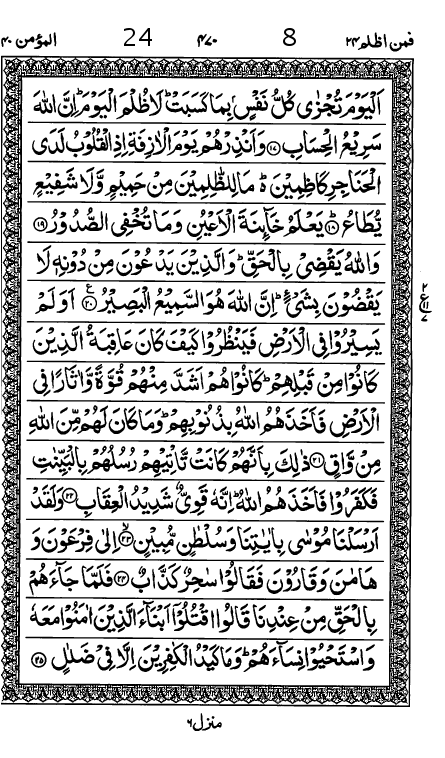 المؤمن ۴۰ 24 ۴۷۰ 8 فمن اظلم ۲۴
اَلْیَوْمَ تُجْزٰی كُلُّ نَفْسٍۭ بِمَا كَسَبَتْ ؕ لَا ظُلْمَ الْیَوْمَ ؕ اِنَّ اللّٰهَ
سَرِیْعُ الْحِسَابِ ﴿۱۷﴾ وَاَنْذِرْهُمْ یَوْمَ الْاٰزِفَةِ اِذِ الْقُلُوْبُ لَدَی
الْحَنَاجِرِ كٰظِمِیْنَ ۬ؕ مَا لِلظّٰلِمِیْنَ مِنْ حَمِیْمٍ وَّلَا شَفِیْعٍ
یُّطَاعُ ﴿۱۸﴾ یَعْلَمُ خَآىِٕنَةَ الْاَعْیُنِ وَمَا تُخْفِی الصُّدُوْرُ ﴿۱۹﴾
وَاللّٰهُ یَقْضِیْ بِالْحَقِّ ؕ وَالَّذِیْنَ یَدْعُوْنَ مِنْ دُوْنِهٖ لَا
یَقْضُوْنَ بِشَیْءٍ ؕ اِنَّ اللّٰهَ هُوَ السَّمِیْعُ الْبَصِیْرُ ﴿۲۰﴾ اَوَلَمْ
یَسِیْرُوْا فِی الْاَرْضِ فَیَنْظُرُوْا كَیْفَ كَانَ عَاقِبَةُ الَّذِیْنَ
كَانُوْا مِنْ قَبْلِهِمْ ؕ كَانُوْا هُمْ اَشَدَّ مِنْهُمْ قُوَّةً وَّاٰثَارًا فِی
الْاَرْضِ فَاَخَذَهُمُ اللّٰهُ بِذُنُوْبِهِمْ ؕ وَمَا كَانَ لَهُمْ مِّنَ اللّٰهِ
مِنْ وَّاقٍ ﴿۲۱﴾ ذٰلِكَ بِاَنَّهُمْ كَانَتْ تَّاْتِیْهِمْ رُسُلُهُمْ بِالْبَیِّنٰتِ
فَكَفَرُوْا فَاَخَذَهُمُ اللّٰهُ ؕ اِنَّهٗ قَوِیٌّ شَدِیْدُ الْعِقَابِ ﴿۲۲﴾ وَلَقَدْ
اَرْسَلْنَا مُوْسٰی بِاٰیٰتِنَا وَسُلْطٰنٍ مُّبِیْنٍ ﴿۲۳﴾ اِلٰی فِرْعَوْنَ وَ
هَامٰنَ وَقَارُوْنَ فَقَالُوْا سٰحِرٌ كَذَّابٌ ﴿۲۴﴾ فَلَمَّا جَآءَهُمْ
بِالْحَقِّ مِنْ عِنْدِنَا قَالُوا اقْتُلُوْۤا اَبْنَآءَ الَّذِیْنَ اٰمَنُوْا مَعَهٗ
وَاسْتَحْیُوْا نِسَآءَهُمْ ؕ وَمَا كَیْدُ الْكٰفِرِیْنَ اِلَّا فِیْ ضَلٰلٍ ﴿۲۵﴾
منزل ۶